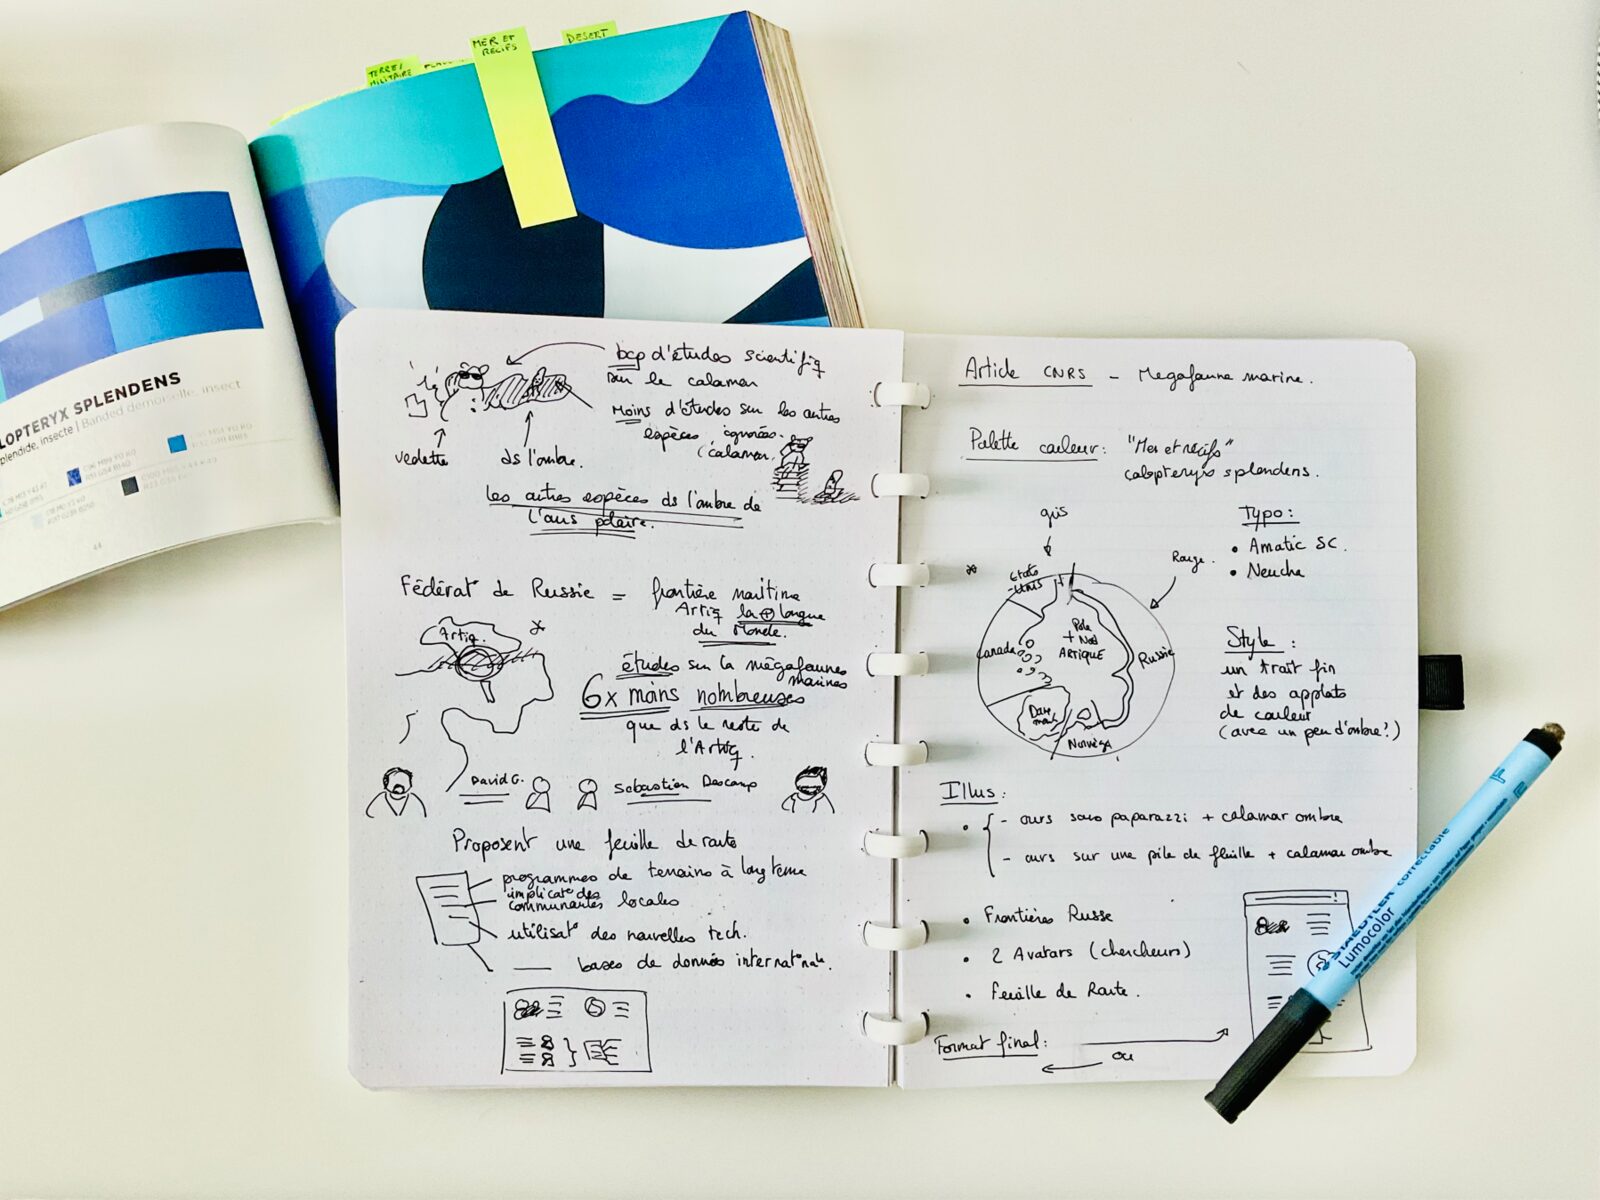 TERRE/
MILITAIRE
MER ET
RECIFS
DESERT
LOPTERYX SPLENDENS
plendide, insecte | Banded demoiselle, insect
44
bcp d'études scientifiq
sur le calamar
Moins d'études sur les autres
espèces ignorées.
(calamar.
vedette
ds l'ombre.
Les autres espèces ds l'ombre de
l'ours polaire.
Fédérat° de Russie = frontière maritime
Artiq la ⊕ longue
du Monde.
Artiq.
études sur la mégafaunes
marines
6x moins nombreuses
que ds le reste de
l'Artiq.
David G.
Sebastien Descamp
Proposent une feuille de route
programmes de terrains à long terme
implicat° des
communautés locales
utilisat° des nouvelles tech.
bases de données internat°nale.
Article CNRS - Megafaune marine.
Palette couleur: "Mer et récifs"
calopteryx splendens.
gris
Typo:
• Amatic SC.
• Neucha
Rouge.
Etats
-Unis
Canada
Pôle
+ Nord
ARTIQUE
Russie
Dane
mark
Norvège
Style :
un trait fin
et des applats
de couleur
(avec un peu d'ombre?)
Illus:
- ours sans paparazzi + calamar ombre
- ours sur une pile de feuille + calamar ombre
• Frontières Russe
• 2 Avatars (chercheurs)
• Feuille de Route.
Format final:
ou
STAEDTLER
Lumocolor
correctable